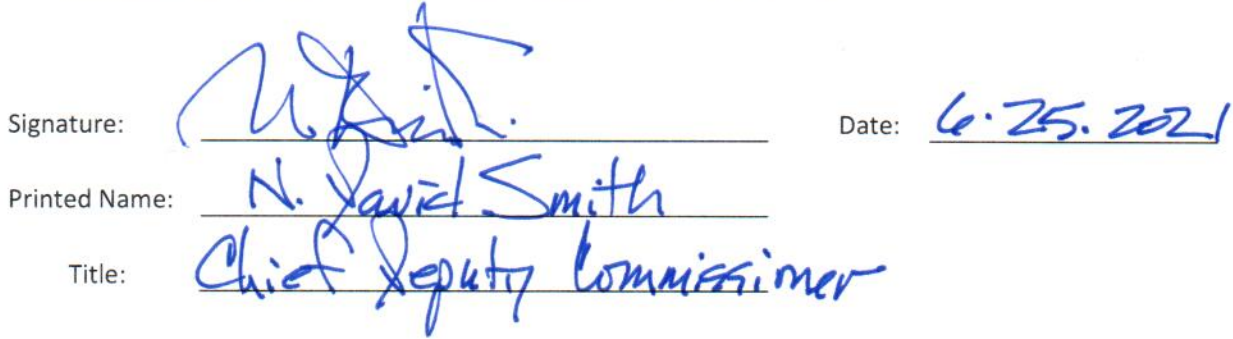 Signature: Date: 6.25.2021
Printed Name: N. David Smith
Title: Chief Deputy Commissioner